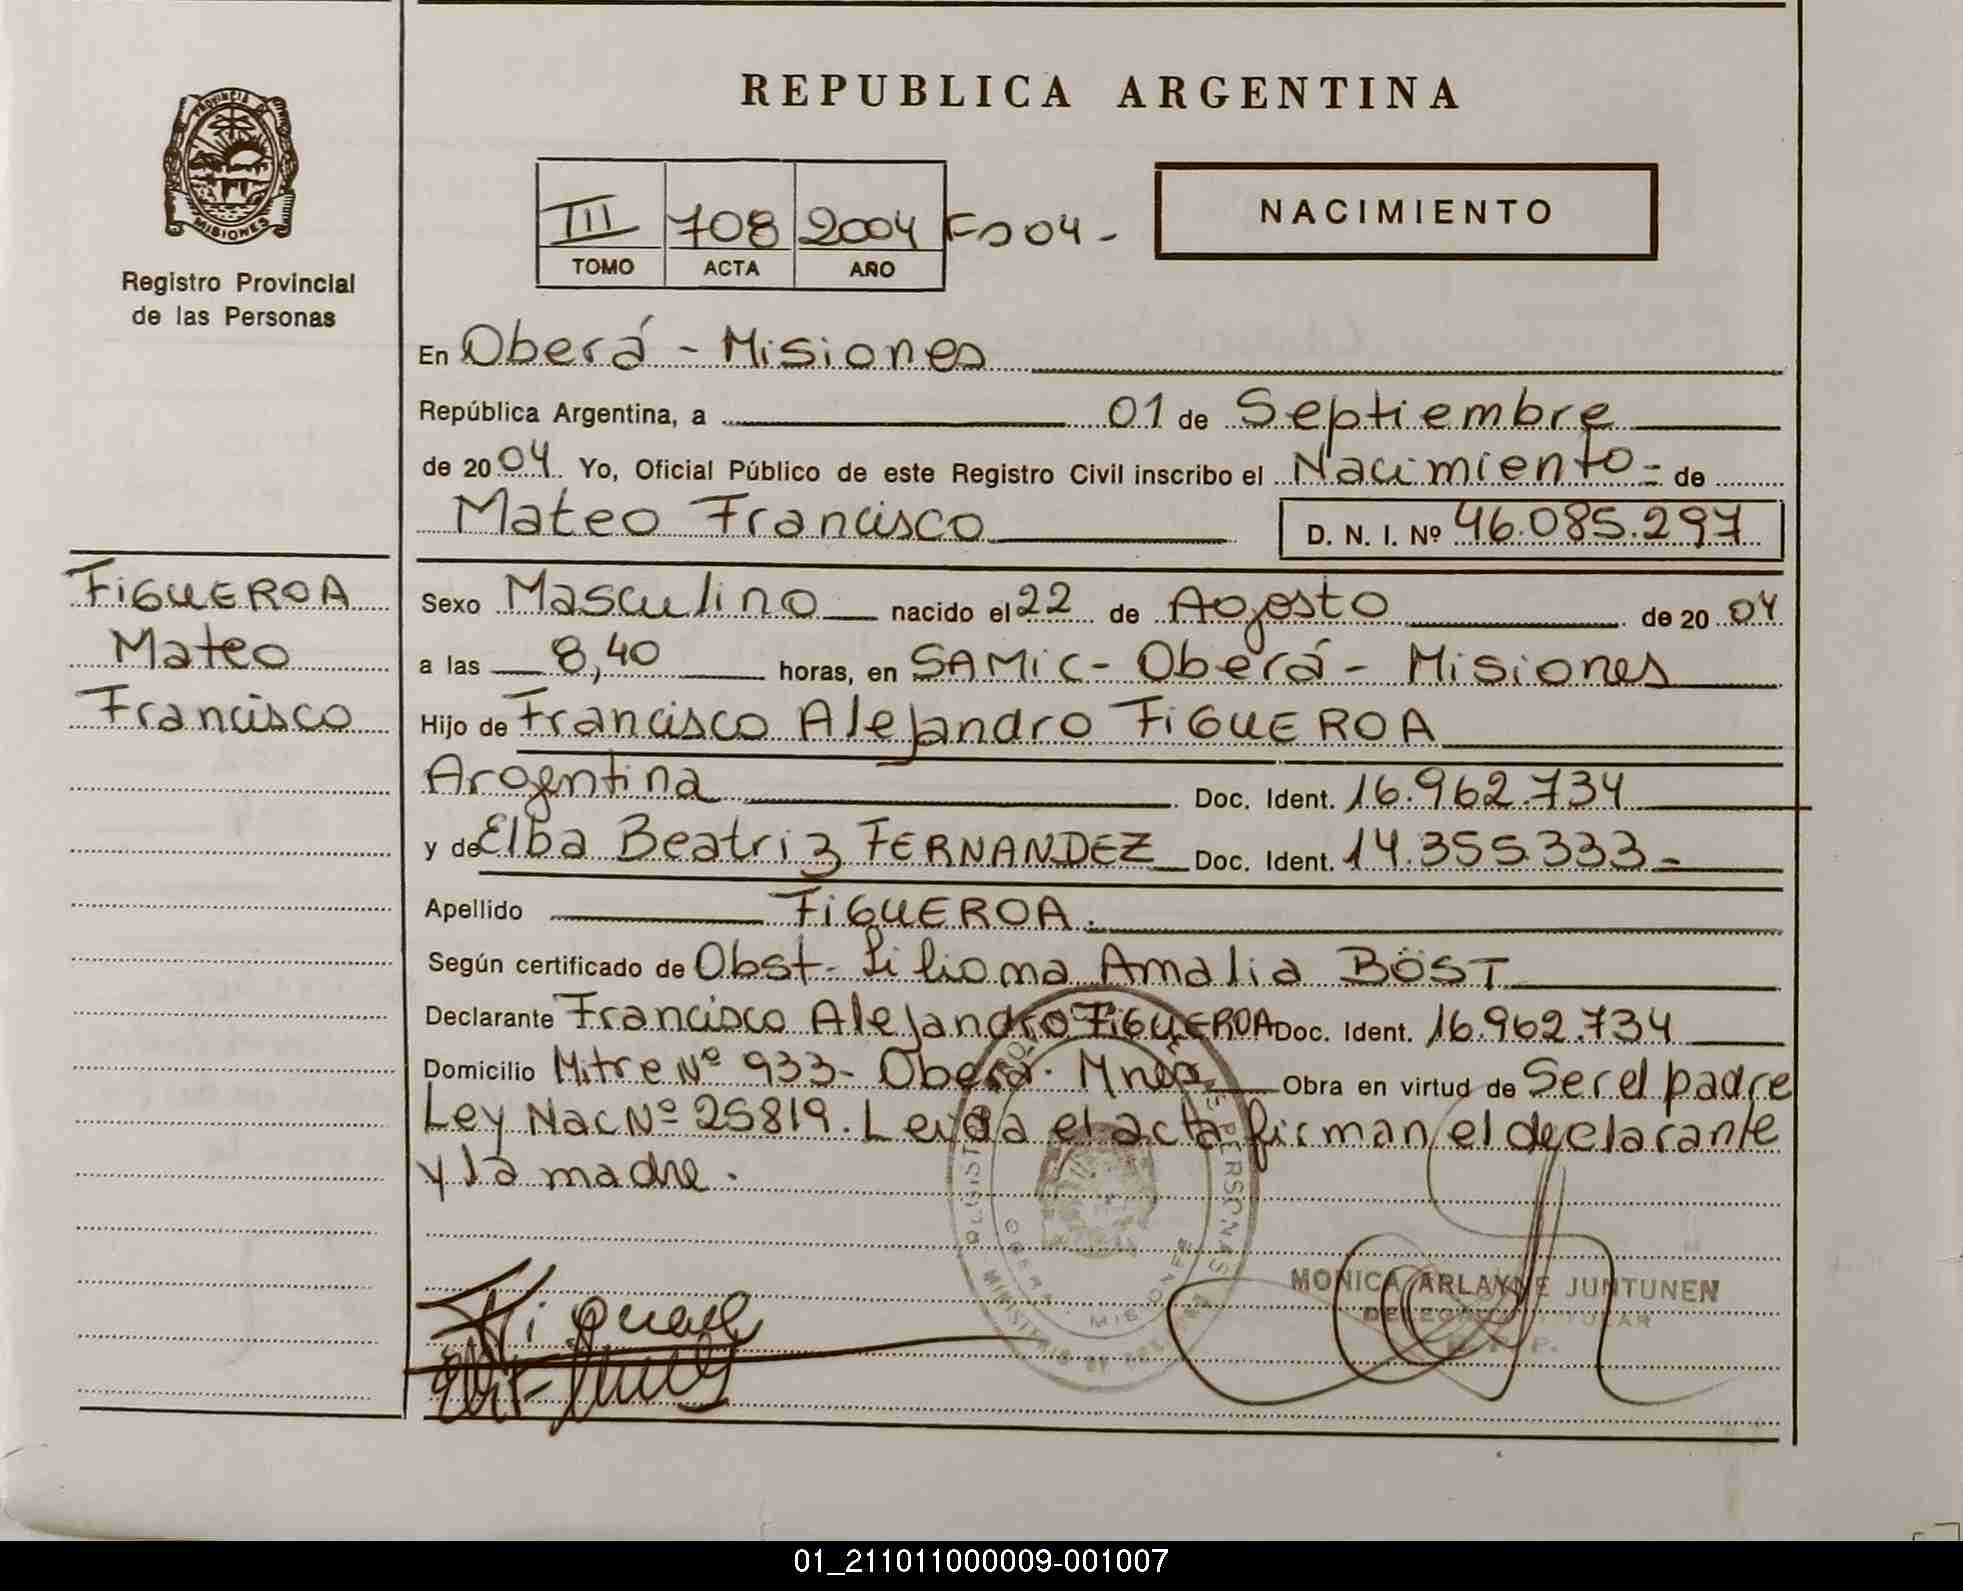 REPUBLICA ARGENTINA
PROVINCIA DE
MISIONES
Registro Provincial
de las Personas
III 708 2004 Fº 04-
TOMO ACTA AÑO
NACIMIENTO
En Oberá - Misiones
República Argentina, a 01 de Septiembre
de 2004 Yo, Oficial Público de este Registro Civil inscribo el Nacimiento- de
Mateo Francisco D. N. I. Nº 46.085.297
FiGUEROA
Mateo
Francisco
Sexo Masculino nacido el 22 de Agosto de 2004
a las 8,40 horas, en SAMiC- Oberá- Misiones
Hijo de Francisco Alejandro FiGUEROA
Argentina Doc. Ident. 16.962.734
y de Elba Beatriz FERNANDEZ Doc. Ident. 14.355.333-
Apellido FiGUEROA.
Según certificado de Obst- Liliana Amalia BÖST
Declarante Francisco Alejandro FiGUEROA Doc. Ident. 16.962.734
Domicilio Mitre Nº 933- Oberá- Mnes Obra en virtud de Ser el padre
Ley Nac Nº 25819. Leida el acta firman el declarante
y la madre.
PERSONAS
OBERA MISIONES
MONICA ARLAYNE JUNTUNEN
DELEGADO TITULAR
01_211011000009-001007